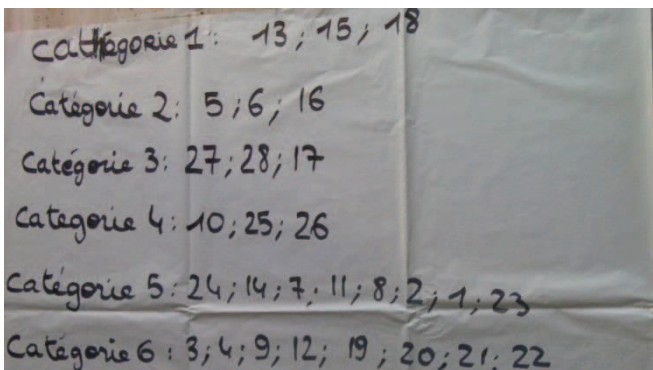 Cathégorie 1 : 13 ; 15 ; 18
Catégorie 2 : 5 ; 6 ; 16
Catégorie 3 : 27 ; 28 ; 17
Categorie 4 : 10 ; 25 ; 26
Catégorie 5 : 24 ; 14 ; 7 ; 11 ; 8 ; 2 ; 1 ; 23
Catégorie 6 : 3 ; 4 ; 9 ; 12 ; 19 ; 20 ; 21 ; 22